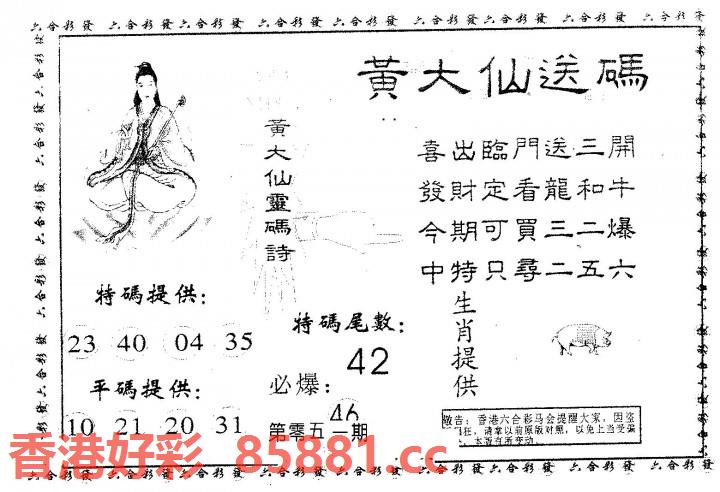 六合彩發 六合彩發 六合彩發 六合彩發 六合彩發 六合彩發 六合彩發 六合彩發 六合彩發
黃大仙送碼
黃大仙靈碼詩
喜出臨門送三開
發財定看龍和牛
今期可買三二爆
中特只尋二五六
生肖提供
特碼提供:
23 40 04 35
特碼尾數:
42
平碼提供:
10 21 20 31
必爆:
46
第零五一期
敬告: 香港六合彩马会提醒大家,因盗
猖狂,请拿以前原版对照,以免上当受骗
本版有所变动
香港好彩 85881.cc
六合彩發 六合彩發 六合彩發 六合彩發 六合彩發 六合彩發